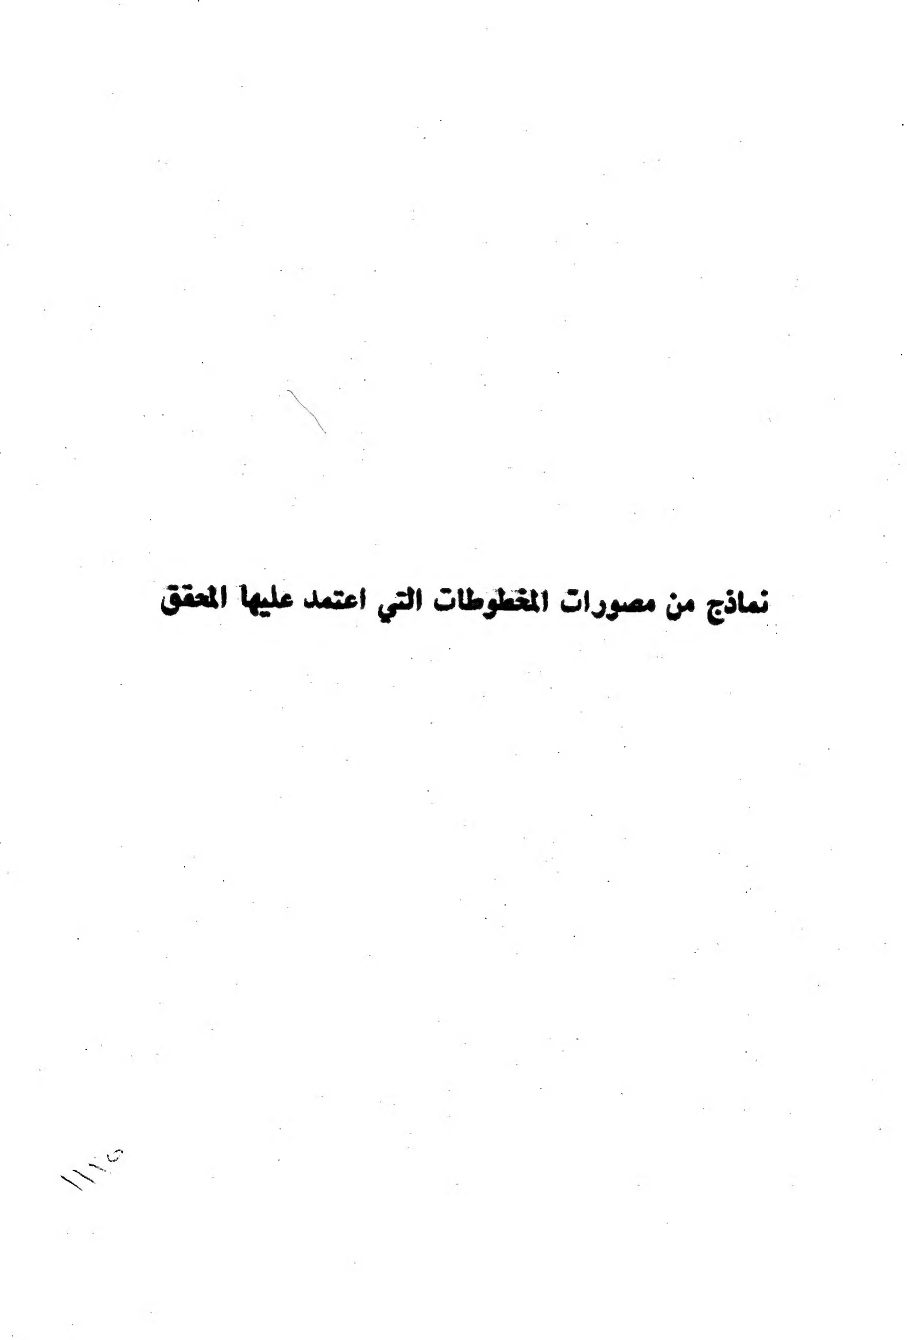 نماذج من مصورات المخطوطات التي اعتمد عليها المحقق